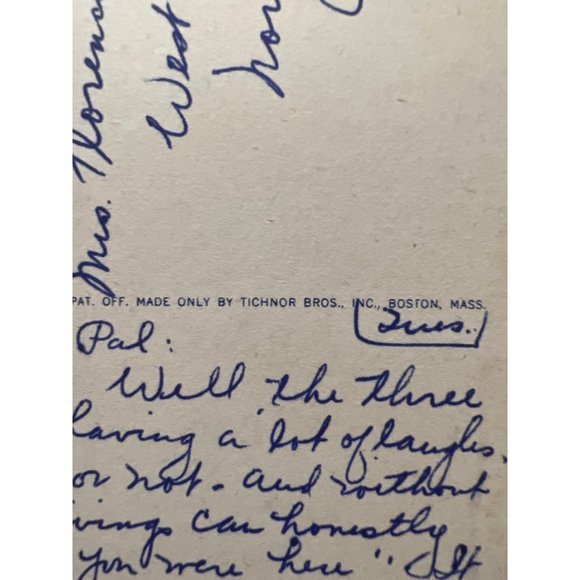 Mrs. Florenc
West
Nor
PAT. OFF. MADE ONLY BY TICHNOR BROS., INC., BOSTON, MASS.
Tues.
Pal:
Well, the three
having a lot of laughs.
or not. and without
vings can honestly
you were here" (It